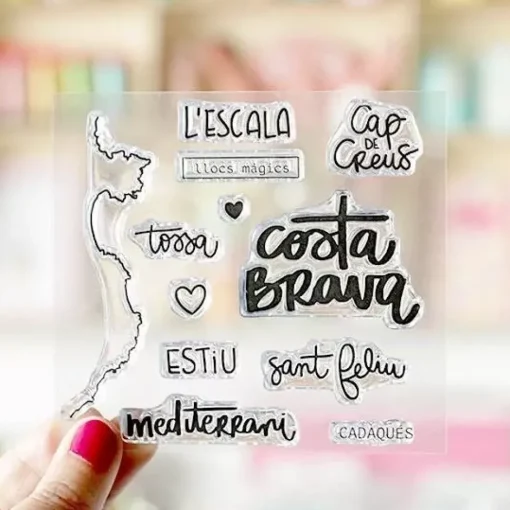 L'ESCALA
llocs màgics
Cap
DE
Creus
tossa
costa
BRAVA
ESTIU
sant feliu
mediterrani
CADAQUÉS